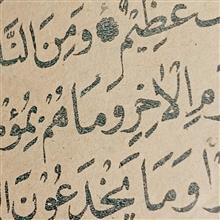 عَظِيمٌ ۝ وَمِنَ النَّا
مِ الْآخِرِ وَمَا هُمْ بِمُؤْ
وَمَا يَخْدَعُونَ